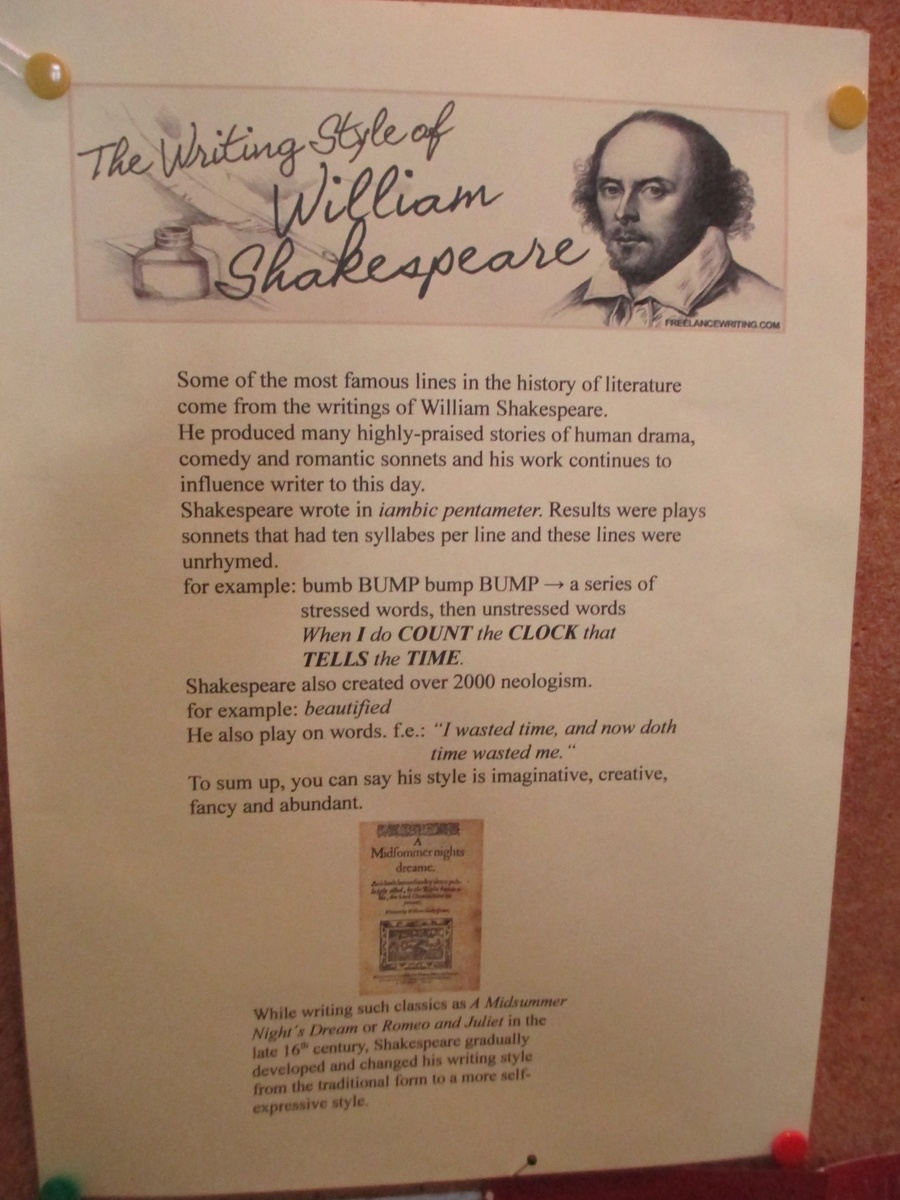 The Writing Style of
William
Shakespeare
FREELANCEWRITING.COM
Some of the most famous lines in the history of literature
come from the writings of William Shakespeare.
He produced many highly-praised stories of human drama,
comedy and romantic sonnets and his work continues to
influence writer to this day.
Shakespeare wrote in iambic pentameter. Results were plays
sonnets that had ten syllabes per line and these lines were
unrhymed.
for example: bumb BUMP bump BUMP → a series of
stressed words, then unstressed words
When I do COUNT the CLOCK that
TELLS the TIME.
Shakespeare also created over 2000 neologism.
for example: beautified
He also play on words. f.e.: “I wasted time, and now doth
time wasted me.“
To sum up, you can say his style is imaginative, creative,
fancy and abundant.
A
Midsommer nights
dreame.
While writing such classics as A Midsummer
Night´s Dream or Romeo and Juliet in the
late 16th century, Shakespeare gradually
developed and changed his writing style
from the traditional form to a more self-
expressive style.